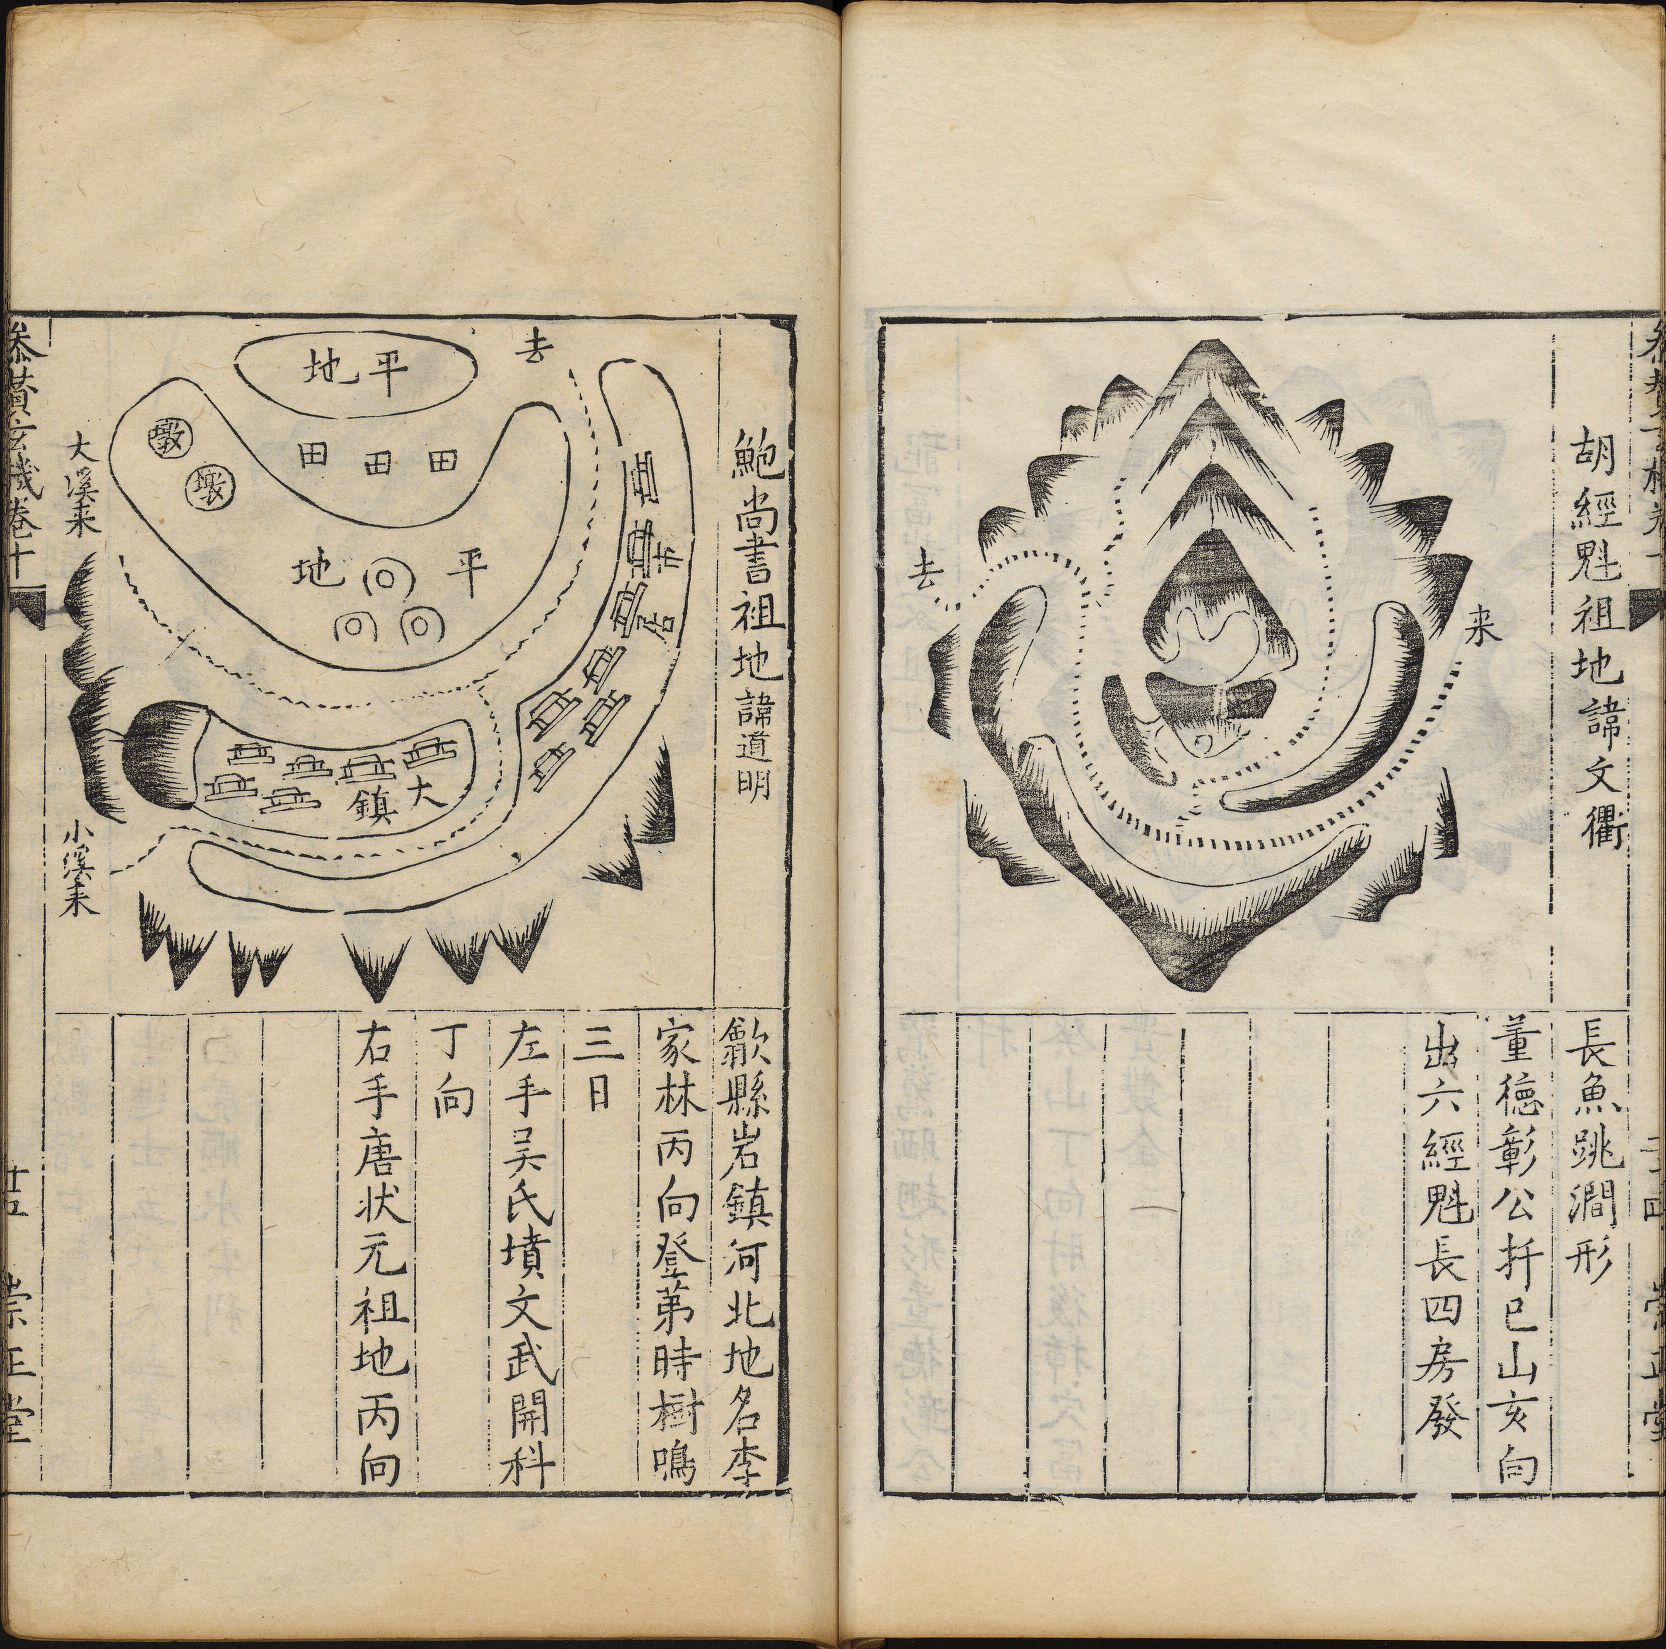 胡經魁祖地諱文衢
来
去
長魚跳澗形
董德彰公扦巳山亥向
出六經魁長四房發
鮑尚書祖地諱道明
去
平地
墩
墩
田田田
平地
市居
大鎮
大溪来
小溪来
歙縣岩鎮河北地名李
家林丙向登第時樹鳴
三日
左手吴氏墳文武開科
丁向
右手唐状元祖地丙向
叅賛玄機卷十
崇正堂